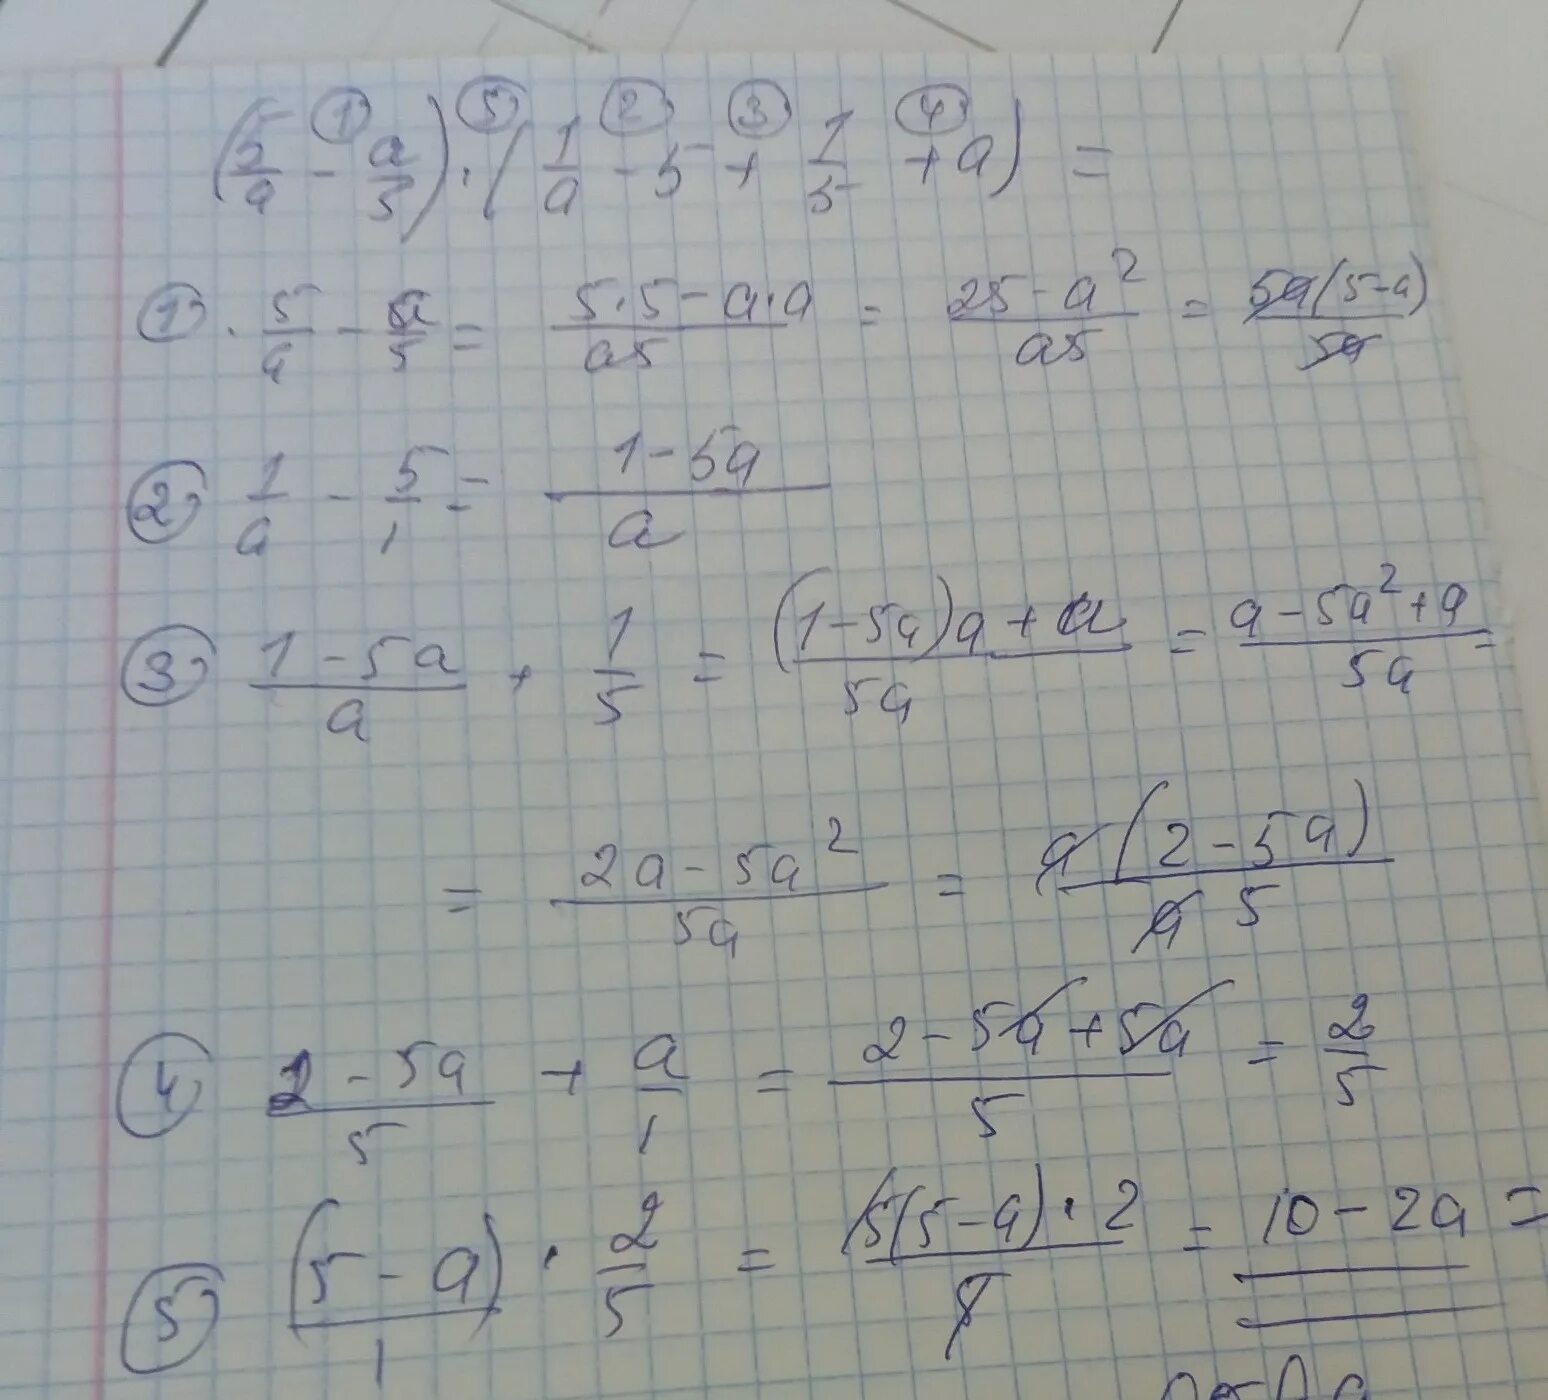 ① ⑤ ② ③ ④
(5/a - a/5) · (1/a - 5 + 1/5 + a) =
① · 5/a - a/5 = (5·5 - a·a)/a5 = (25 - a²)/a5 = 5a(5-a)/5a
② 1/a - 5/1 = (1-5a)/a
③ (1-5a)/a + 1/5 = ((1-5a)a + a)/5a = (a - 5a² + a)/5a =
= (2a - 5a²)/5a = a(2-5a)/a5
④ (2-5a)/5 + a/1 = (2-5a+5a)/5 = 2/5
⑤ (5-a)/1 · 2/5 = 5(5-a)·2/5 = 10-2a =